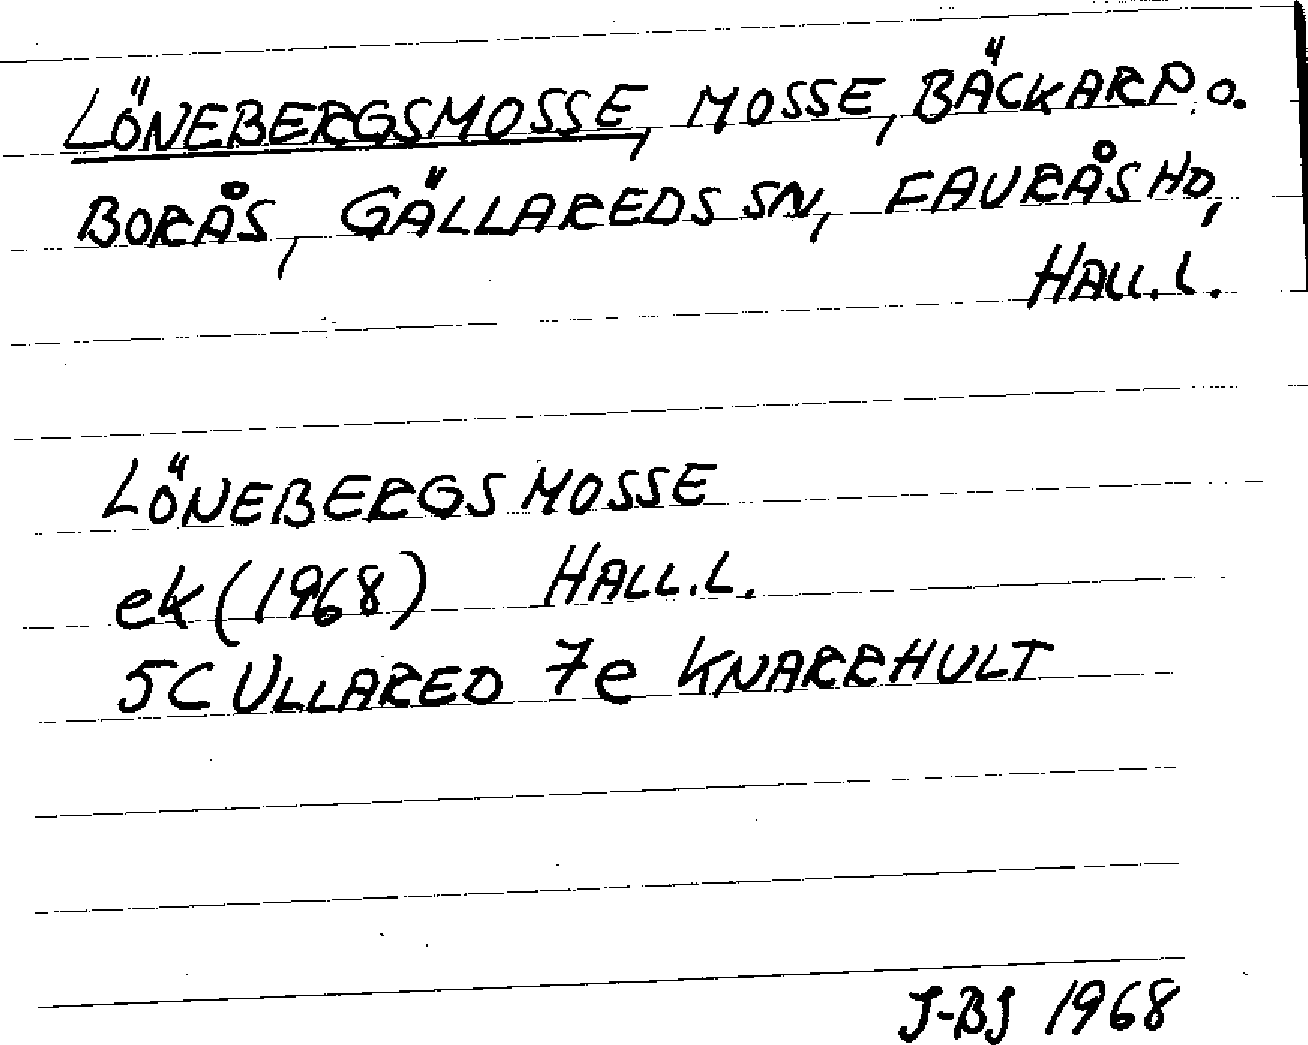 LÖNEBERGSMOSSE, MOSSE, BÄCKARP o.
BORÅS, GÄLLAREDS SN, FAURÅS HD,
HALL.L.
LÖNEBERGSMOSSE
ek (1968) HALL.L.
5C ULLARED 7e KNARRHULT
J-BJ 1968